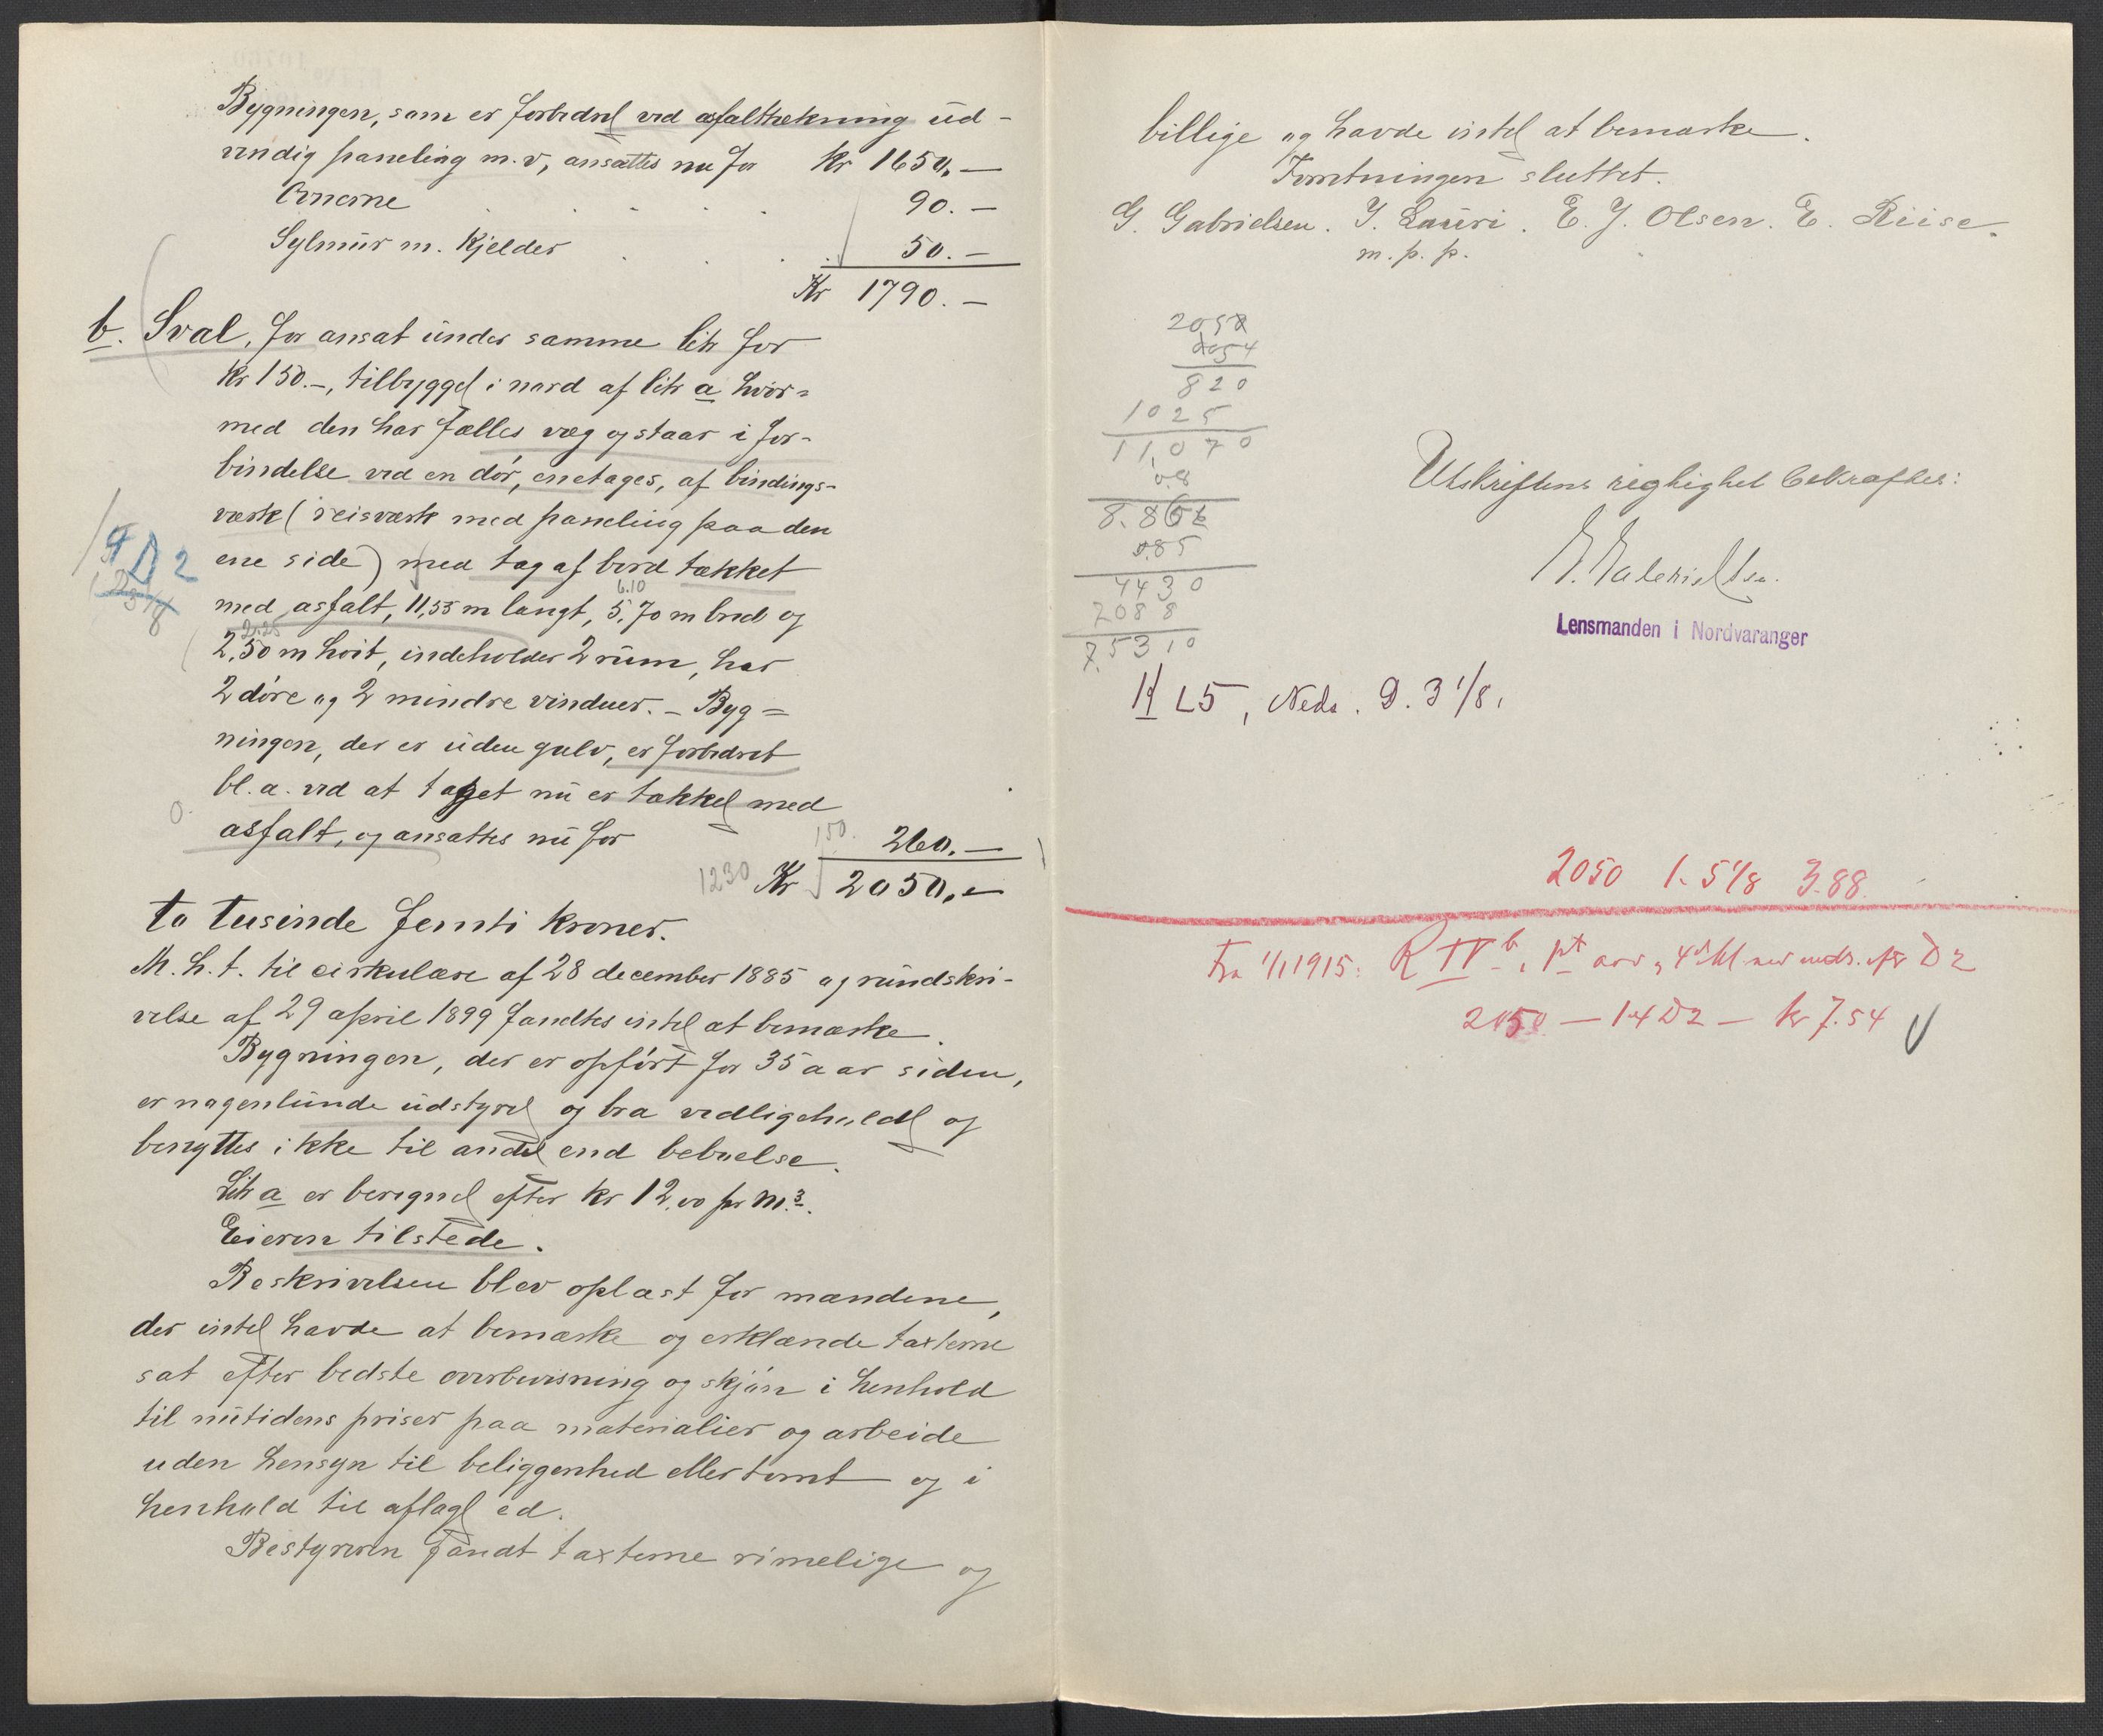 Bygningen, som er forbedret ved asfalttækning ud-
vendig paneling m.v., ansættes nu for Kr 1650,—
Ovnerne . . . . . 90.—
Sylmur m. Kjelder . . . . 50.—
Kr 1790.—
b. Sval, før ansat under samme litr for
Kr 150.—, tilbygget i nord af litr a hvor-
med den har fælles væg og staar i for-
bindelse ved en dør, enetages, af bindings-
værk (reisværk med paneling paa den
ene side) med tag af bord tækket
6.10
med asfalt, 11,55 m langt, 5,70 m bred og
2.25
2,50 m høit, indeholder 2 rum, har
2 døre og 2 mindre vinduer. — Byg=
ningen, der er uden gulv, er forbedret
bl.a. ved at taget nu er tækket med
0.
asfalt, og ansættes nu for 150. 260.—
1230 Kr 2050,—
to tusinde femti kroner.
M.h.t. til cirkulære af 28 december 1885 og rundskri-
velse af 29 april 1899 fandtes intet at bemærke.
Bygningen, der er opført for 35 aar siden,
er nogenlunde udstyret og bra vedligeholdt og
benyttes ikke til andet end bebuelse.
Litr a er beregnet efter kr 12.00 pr m.3.
Eieren tilstede.
Beskrivelsen blev oplæst for mændene,
der intet havde at bemærke og erklærede taxterne
sat efter bedste overbevisning og skjøn i henhold
til nutidens priser paa materialier og arbeide
uden hensyn til beliggenhed eller tomt og i
henhold til aflagt ed.
Bestyreren fandt taxterne rimelige og
D 2
billige og havde intet at bemærke.
Forretningen sluttet.
G. Gabrielsen. I. Lauri. E. J. Olsen. E. Riise.
m. p. p.
205
054
820
1025
11,070
0.8
8.856
0.85
4430
7088
7.5310
Utskriftens rigtighet bekræftes:
G. Gabrielsen
Lensmanden i Nordvaranger
H L5, Neds. D. 3 1/8.
2050 1. 5 1/8 3.88.
Fra 1/1 1915: R IV b,
2050 — 14 D2 — kr 7.54